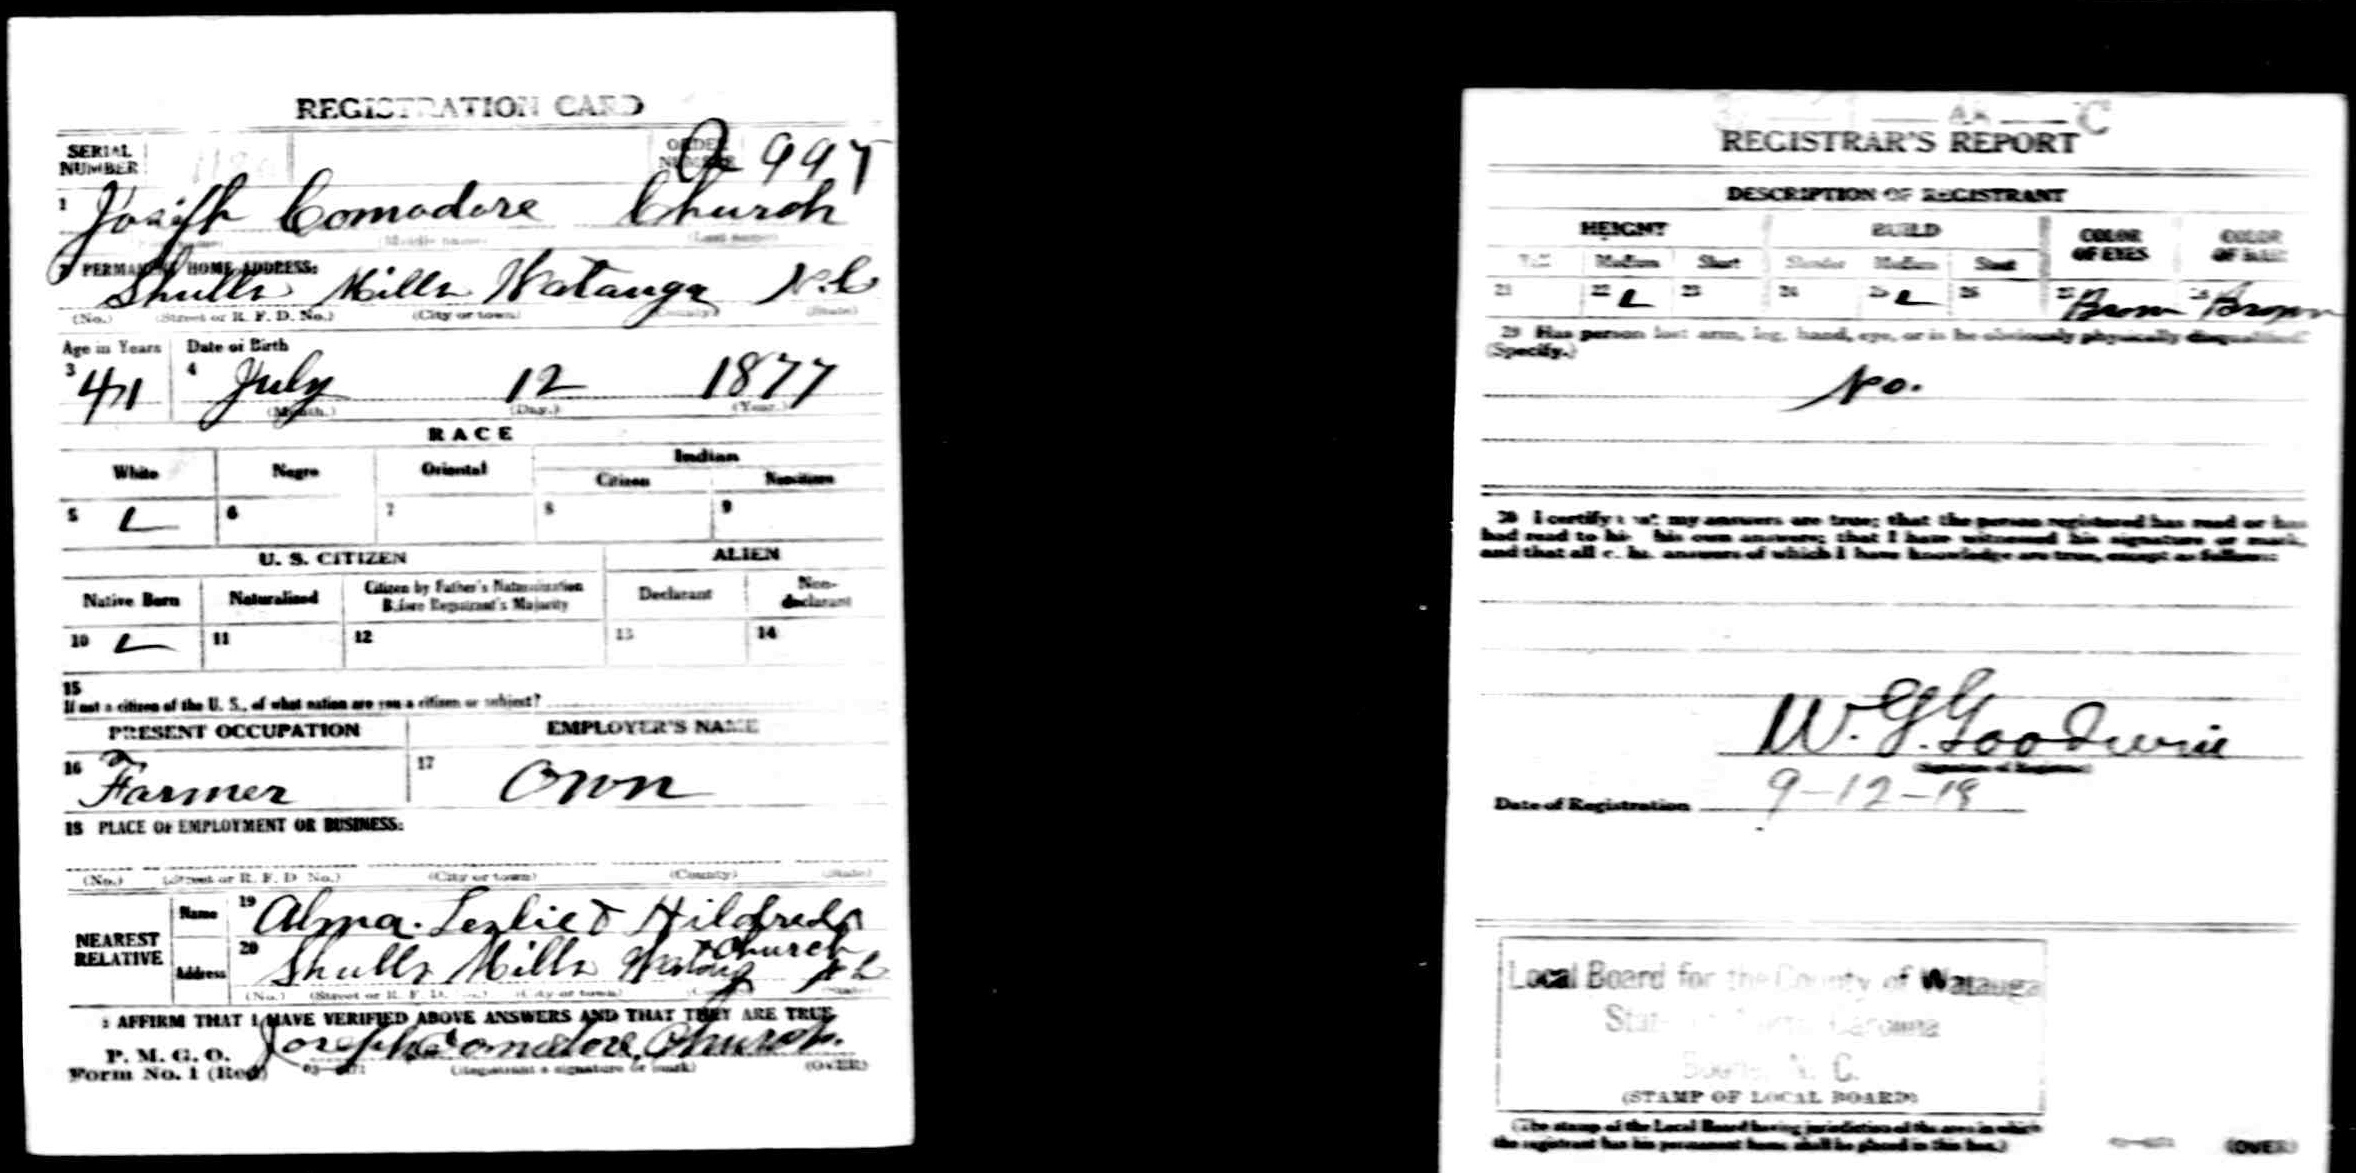 REGISTRATION CARD
SERIAL NUMBER
ORDER NUMBER A 997
1 Joseph Comodore Church
(Middle name) (Last name)
2 PERMANENT HOME ADDRESS:
Shulls Mills Watauga N.C.
(No.) (Street or R. F. D. No.) (City or town) (County) (State)
Age in Years Date of Birth
3 41 4 July 12 1877
(Month.) (Day.) (Year.)
RACE
White Negro Oriental Indian
Citizen Noncitizen
5 6 7 8 9
U. S. CITIZEN ALIEN
Native Born Naturalized Citizen by Father's Naturalization Before Registrant's Majority Declarant Non-declarant
10 11 12 13 14
15
If not a citizen of the U. S., of what nation are you a citizen or subject?
PRESENT OCCUPATION EMPLOYER'S NAME
16 Farmer 17 Own
18 PLACE OF EMPLOYMENT OR BUSINESS:
(No.) (Street or R. F. D. No.) (City or town) (County) (State)
NEAREST RELATIVE
Name 19 Alma. Leslie & Hildred
Church
Address 20 Shulls Mills Watauga N C
(No.) (Street or R. F. D. No.) (City or town) (County) (State)
I AFFIRM THAT I HAVE VERIFIED ABOVE ANSWERS AND THAT THEY ARE TRUE
P. M. G. O.
Form No. 1 (Red)
Joseph Comodore Church.
(Registrant's signature or mark) (OVER)
C
REGISTRAR'S REPORT
DESCRIPTION OF REGISTRANT
HEIGHT BUILD COLOR OF EYES COLOR OF HAIR
Tall Medium Short Slender Medium Stout
21 22 23 24 25 26 27 Brown 28 Brown
29 Has person lost arm, leg, hand, eye, or is he obviously physically disqualified?
(Specify.)
No.
30 I certify that my answers are true; that the person registered has read or has
had read to him his own answers; that I have witnessed his signature or mark,
and that all of his answers of which I have knowledge are true, except as follows:
W. G. Goodwin
(Signature of Registrar)
Date of Registration 9-12-18
Local Board for the County of Watauga
State of North Carolina
Boone, N. C.
(STAMP OF LOCAL BOARD)
(The stamp of the Local Board having jurisdiction of the area in which
the registrant has his permanent home shall be placed in this box.)
(OVER)